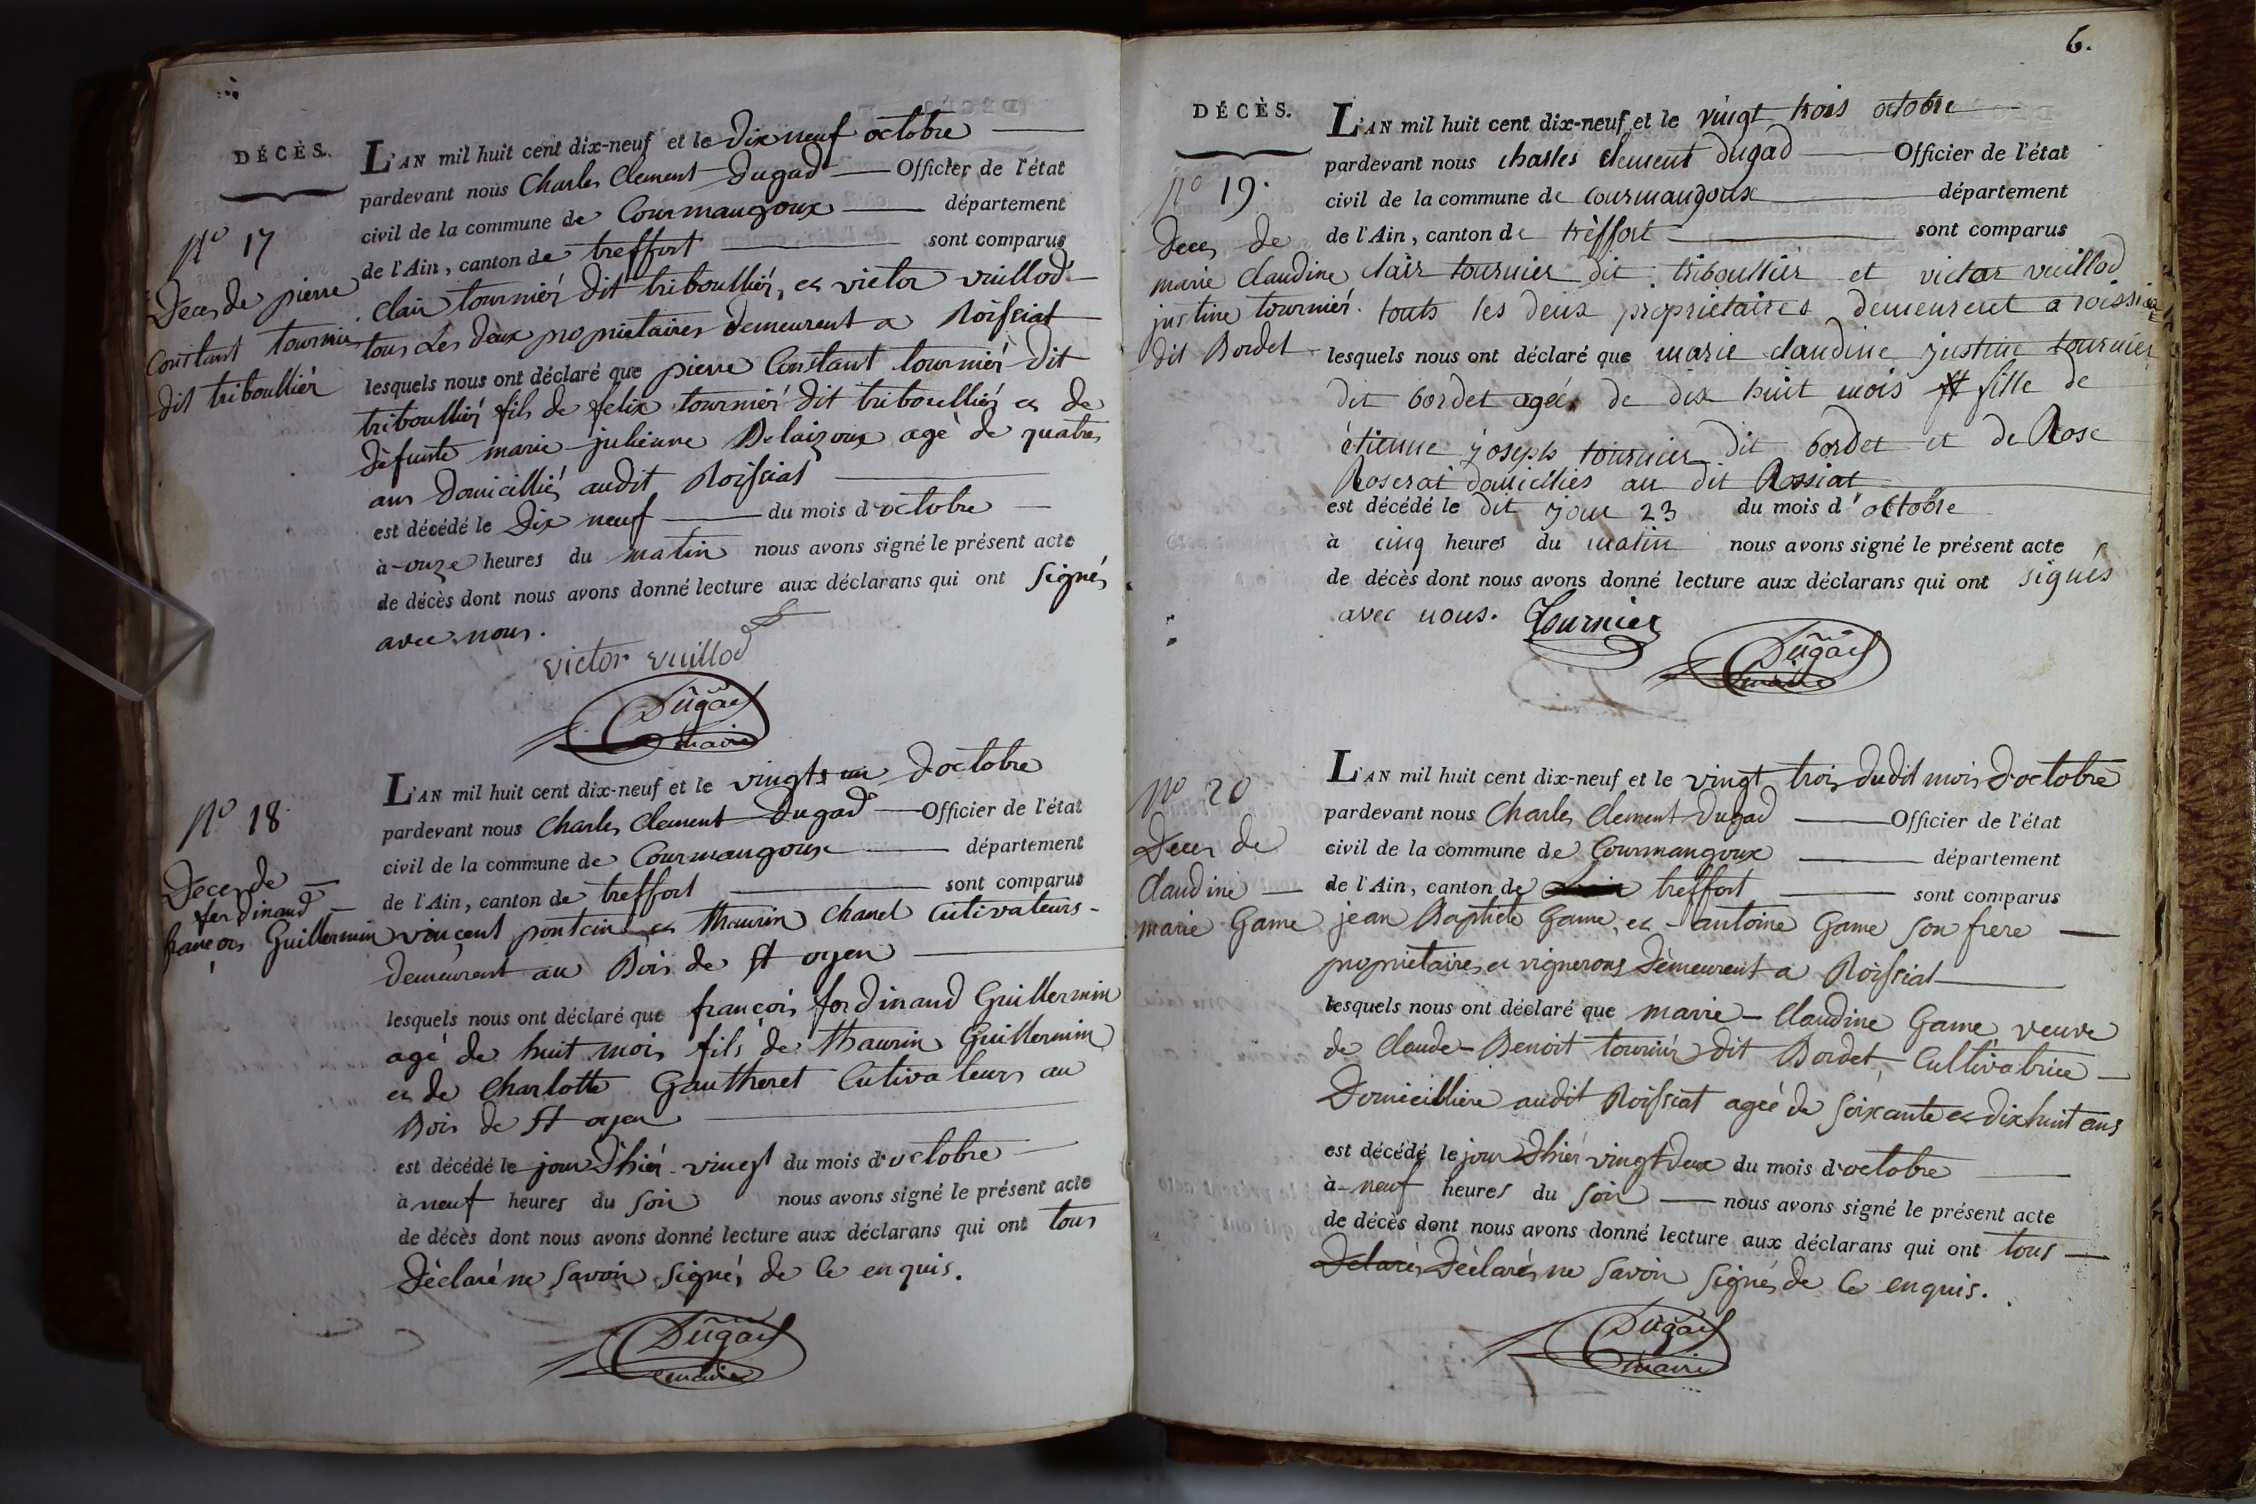 DÉCÈS.
L'AN mil huit cent dix-neuf et le Dix neuf octobre
pardevant nous Charles Clement Dugad Officier de l'état
civil de la commune de Courmangoux département
de l'Ain, canton de treffort sont comparus
No 17
Deces de pierre
Constant tournier
dit triboullier
clair tourniér dit triboulliér, et victor vuillod
tous Les deux propriétaires demeurent a Roissiat
lesquels nous ont déclaré que pierre Constant tourniér dit
triboulliér fils de felix tourniér dit triboulliér et de
défunte marie julienne Delaizoux agé de quatres
ans Domicilliés audit Roissiat
est décédé le Dix neuf du mois d'octobre
à onze heures du matin nous avons signé le présent acte
de décès dont nous avons donné lecture aux déclarans qui ont signés
avec nous.
victor vuillod
Dugad
maire
L'AN mil huit cent dix-neuf et le vingts un d'octobre
pardevant nous Charles Clement Dugad Officier de l'état
civil de la commune de Courmangoux département
de l'Ain, canton de treffort sont comparus
No 18.
Deces de
ferdinand
françois Guillermin
vinçent pontcin et thaurin Chanel Cutivateurs
demeurent au Bois de st oyen
lesquels nous ont déclaré que françois ferdinand Guillermin
agé de huit mois fils de thaurin Guillermin
et de Charlotte Gautheret Cutivateurs au
Bois de St oyen
est décédé le jour d'hiér vingt du mois d'octobre
à neuf heures du soir nous avons signé le présent acte
de décès dont nous avons donné lecture aux déclarans qui ont tous
Déclaré ne savoir signés de ce enquis.
Dugad
maire
6.
DÉCÈS.
L'AN mil huit cent dix-neuf et le vingt trois octobre
pardevant nous charles clement dugad Officier de l'état
civil de la commune de courmangoux département
de l'Ain, canton de trèffort sont comparus
No 19.
Deces de
marie Claudine
justine tourniér
dit Bordet
clair tournier dit triboullier et victor vuillod
touts les deux propriétaires demeurent a roissiat
lesquels nous ont déclaré que marie claudine justine tournier
dit bordet agée de dix huit mois fille de
étienne joseph tournier dit bordet et de Rose
Roserat domicilliés au dit Rossiat
est décédé le dit jour 23 du mois d'octobre
à cinq heures du matin nous avons signé le présent acte
de décès dont nous avons donné lecture aux déclarans qui ont signés
avec nous. Tournier
Dugad
maire
L'AN mil huit cent dix-neuf et le vingt trois dudit mois d'octobre
pardevant nous Charles Clement Dugad Officier de l'état
civil de la commune de Courmangoux département
de l'Ain, canton de treffort sont comparus
No 20
Deces de
Claudine
marie Game
jean Baptiste Game, et antoine Game son frere
propriétaires et vignerons Demeurent a Roissiat
lesquels nous ont déclaré que marie Claudine Game veuve
de Claude Benoit tourniér dit Bordet, Cultivatrice
Domicilliére audit Roissiat agée de soixante et dix huit ans
est décédé le jour d'hiér vingt deux du mois d'octobre
à neuf heures du soir nous avons signé le présent acte
de décès dont nous avons donné lecture aux déclarans qui ont tous
Délarés Déclarés ne savoir signés de ce enquis.
Dugad
maire